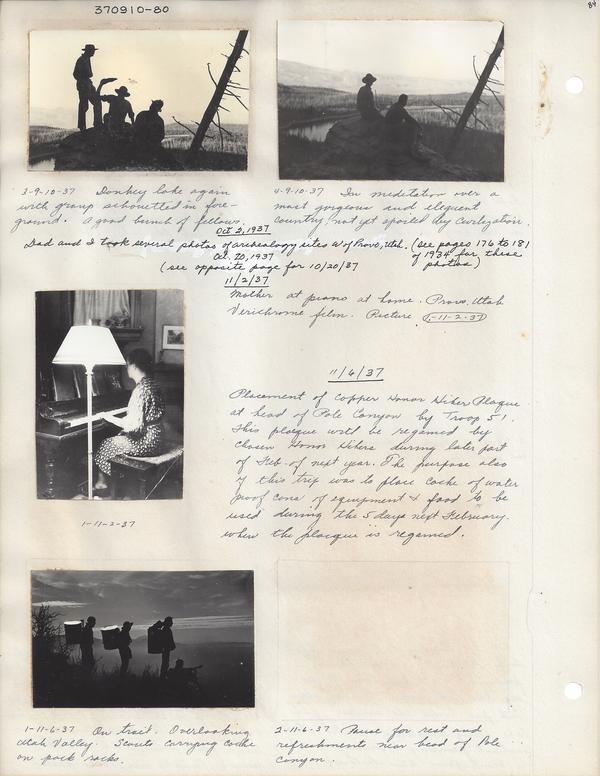 370910-80
84
3-9-10-37 Donkey lake again
with group silhouetted in fore-
ground. A good bunch of fellows.
4-9-10-37 In meditation over a
most gorgeous and eloquent
country, not yet spoiled by civilization.
Oct 2, 1937
Dad and I took several photos of archeology sites W of Provo, Utah. (see pages 176 to 181
of 1934 for these
photos)
Oct. 20, 1937
(see opposite page for 10/20/37
11/2/37
Mother at piano at home. Provo, Utah
Verichrome film. Picture 1-11-2-37
1-11-2-37
11/6/37
Placement of Copper Honor Hiker Plaque
at head of Pole Canyon by Troop 51.
This plaque will be regained by
chosen Honor Hikers during later part
of Feb. of next year. The purpose also
of this trip was to place cache of water
proof cans of equipment & food to be
used during the 5 days next February
when the plaque is regained.
1-11-6-37 On trail. Overlooking
Utah Valley. Scouts carrying cache
on pack racks.
2-11-6-37 Pause for rest and
refreshments near head of Pole
Canyon.